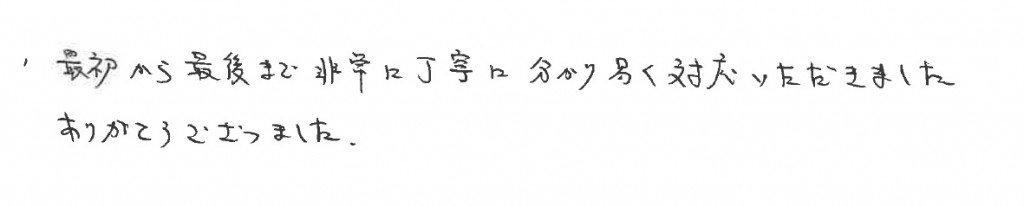 最初から最後まで非常に丁寧に分かり易く対応いただきました
ありがとうございました.